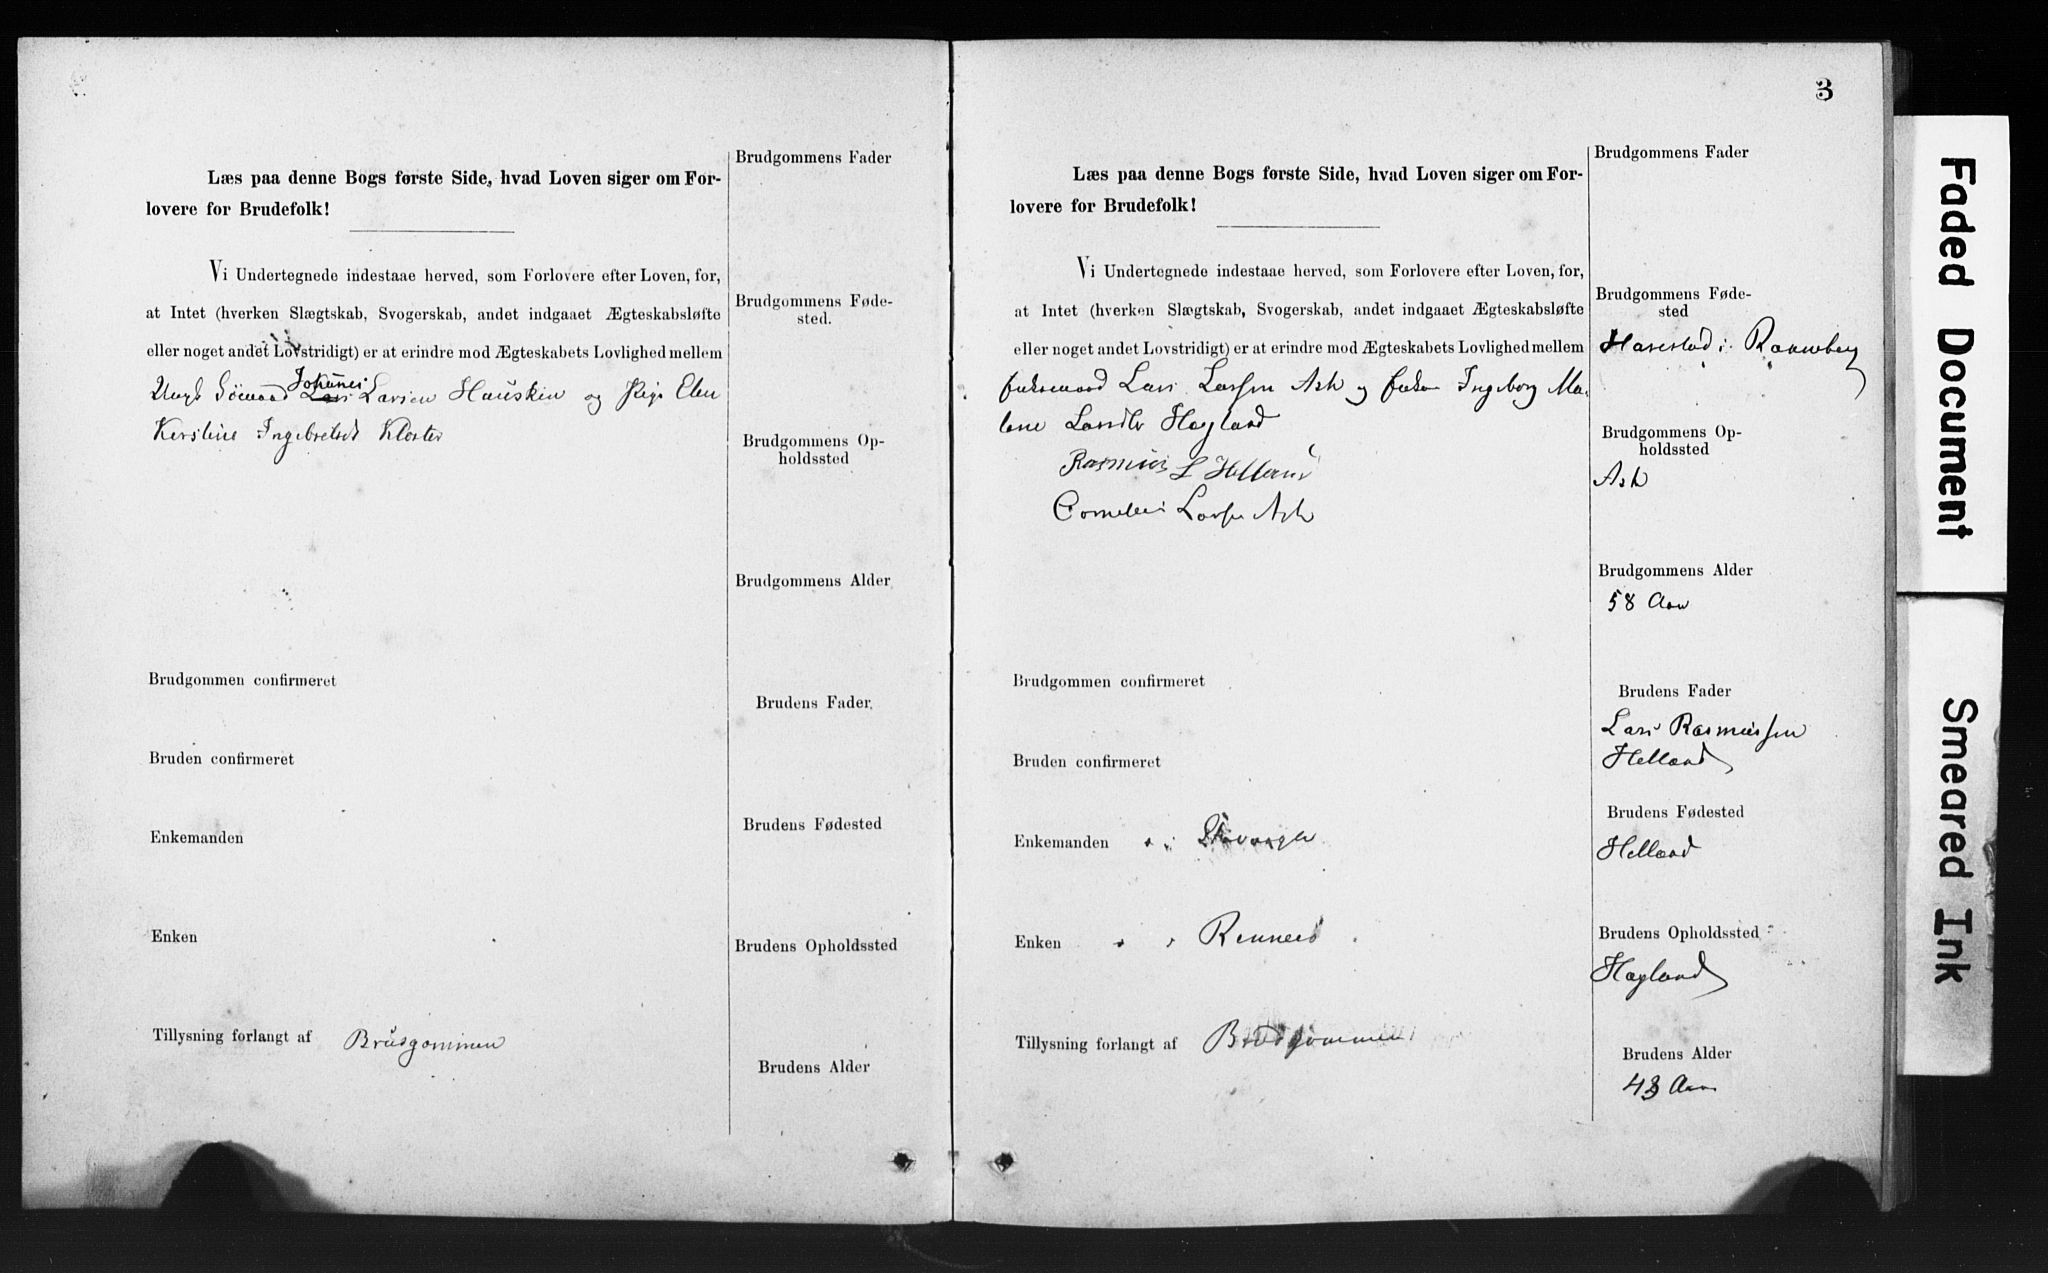 Læs paa denne Bogs første Side, hvad Loven siger om For-
lovere for Brudefolk!
Vi Undertegnede indestaae herved, som Forlovere efter Loven, for,
at Intet (hverken Slægtskab, Svogerskab, andet indgaaet Ægteskabsløfte
eller noget andet Lovstridigt) er at erindre mod Ægteskabets Lovlighed mellem
Johanes
Ungk Sömand Lars Larsen Hausken og Pige Elen
Kerstine Ingebretsd Kloster
Brudgommen confirmeret
Bruden confirmeret
Enkemanden
Enken
Tillysning forlangt af Brudgommen
Brudgommens Fader
Brudgommens Føde-
sted.
Brudgommens Op-
holdssted
Brudgommens Alder
Brudens Fader
Brudens Fødested
Brudens Opholdssted
Brudens Alder
3
Læs paa denne Bogs første Side, hvad Loven siger om For-
lovere for Brudefolk!
Vi Undertegnede indestaae herved, som Forlovere efter Loven, for,
at Intet (hverken Slægtskab, Svogerskab, andet indgaaet Ægteskabsløfte
eller noget andet Lovstridigt) er at erindre mod Ægteskabets Lovlighed mellem
Enkemand Lars Larsen Ask og Enke Ingeborg Ma-
lene Larsdtr Hagland
Rasmus L Helland
Cornelius Larsen Ask
Brudgommen confirmeret
Bruden confirmeret
Enkemanden Stavanger
Enken Rennesö
Tillysning forlangt af Brudgommen
Brudgommens Fader
Brudgommens Føde-
sted
Harestad i Ranneberg
Brudgommens Op-
holdssted
Ask
Brudgommens Alder
58 Aar
Brudens Fader
Lars Rasmussen
Helland
Brudens Fødested
Helland
Brudens Opholdssted
Hagland
Brudens Alder
43 Aar
Faded Document
Smeared Ink